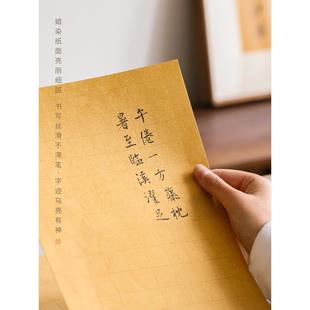 午倦一方藥枕
暑至臨溪濯足
蜡染纸面亮丽细腻 书写丝滑不滞笔·字迹乌亮有神